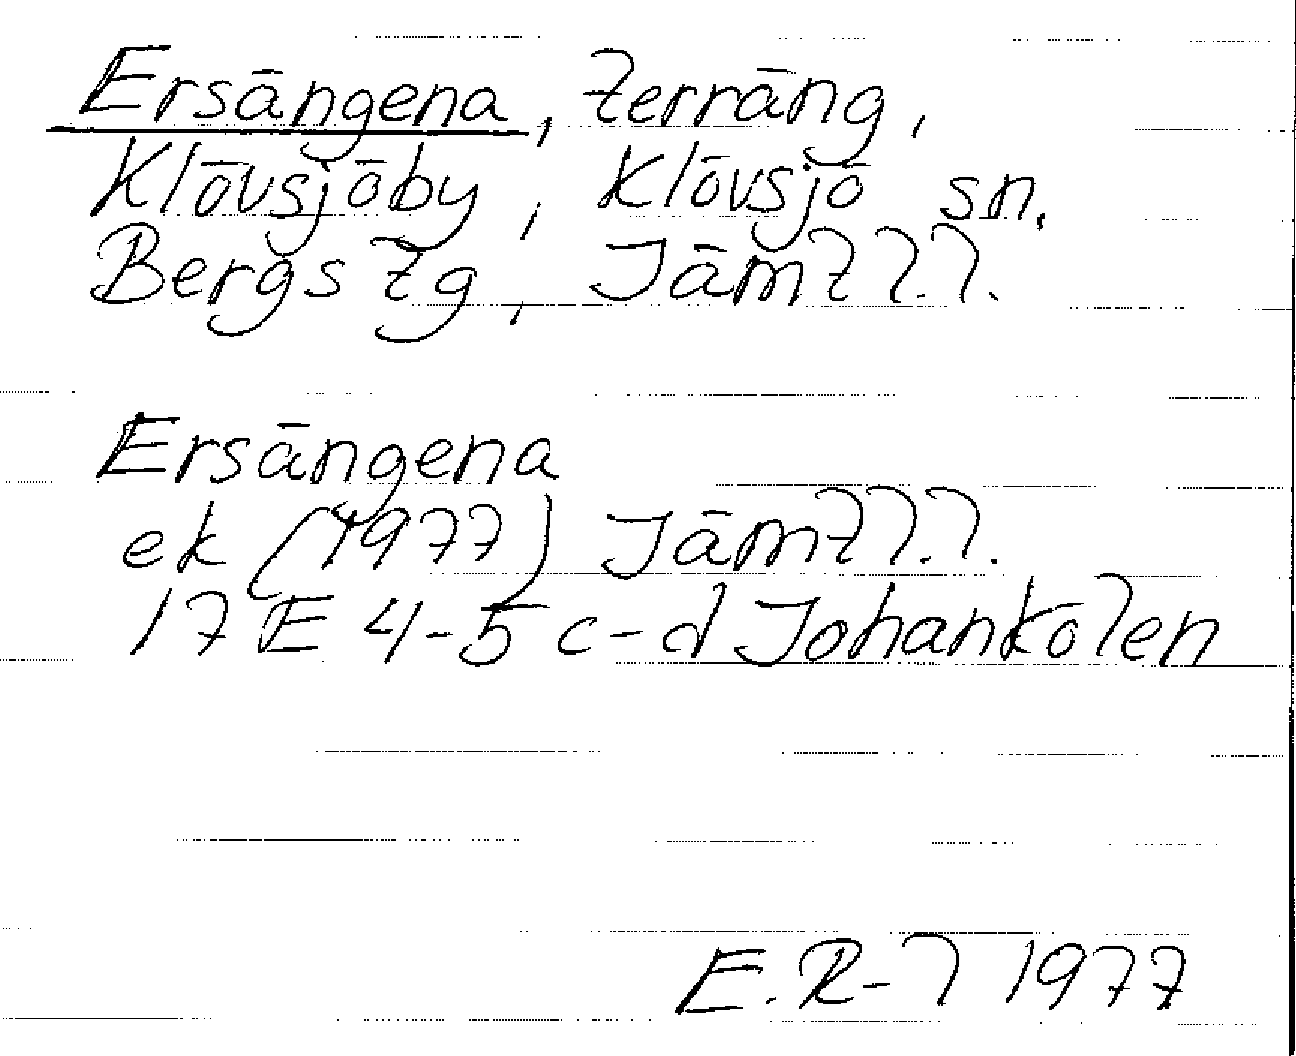 Ersängena, terräng,
Klövsjöby, Klövsjö sn.
Bergs tg, Jämtl.l.
Ersängena
ek (1977) Jämtl.l.
17 E 4-5 c-d Johankölen
E.R-l 1977